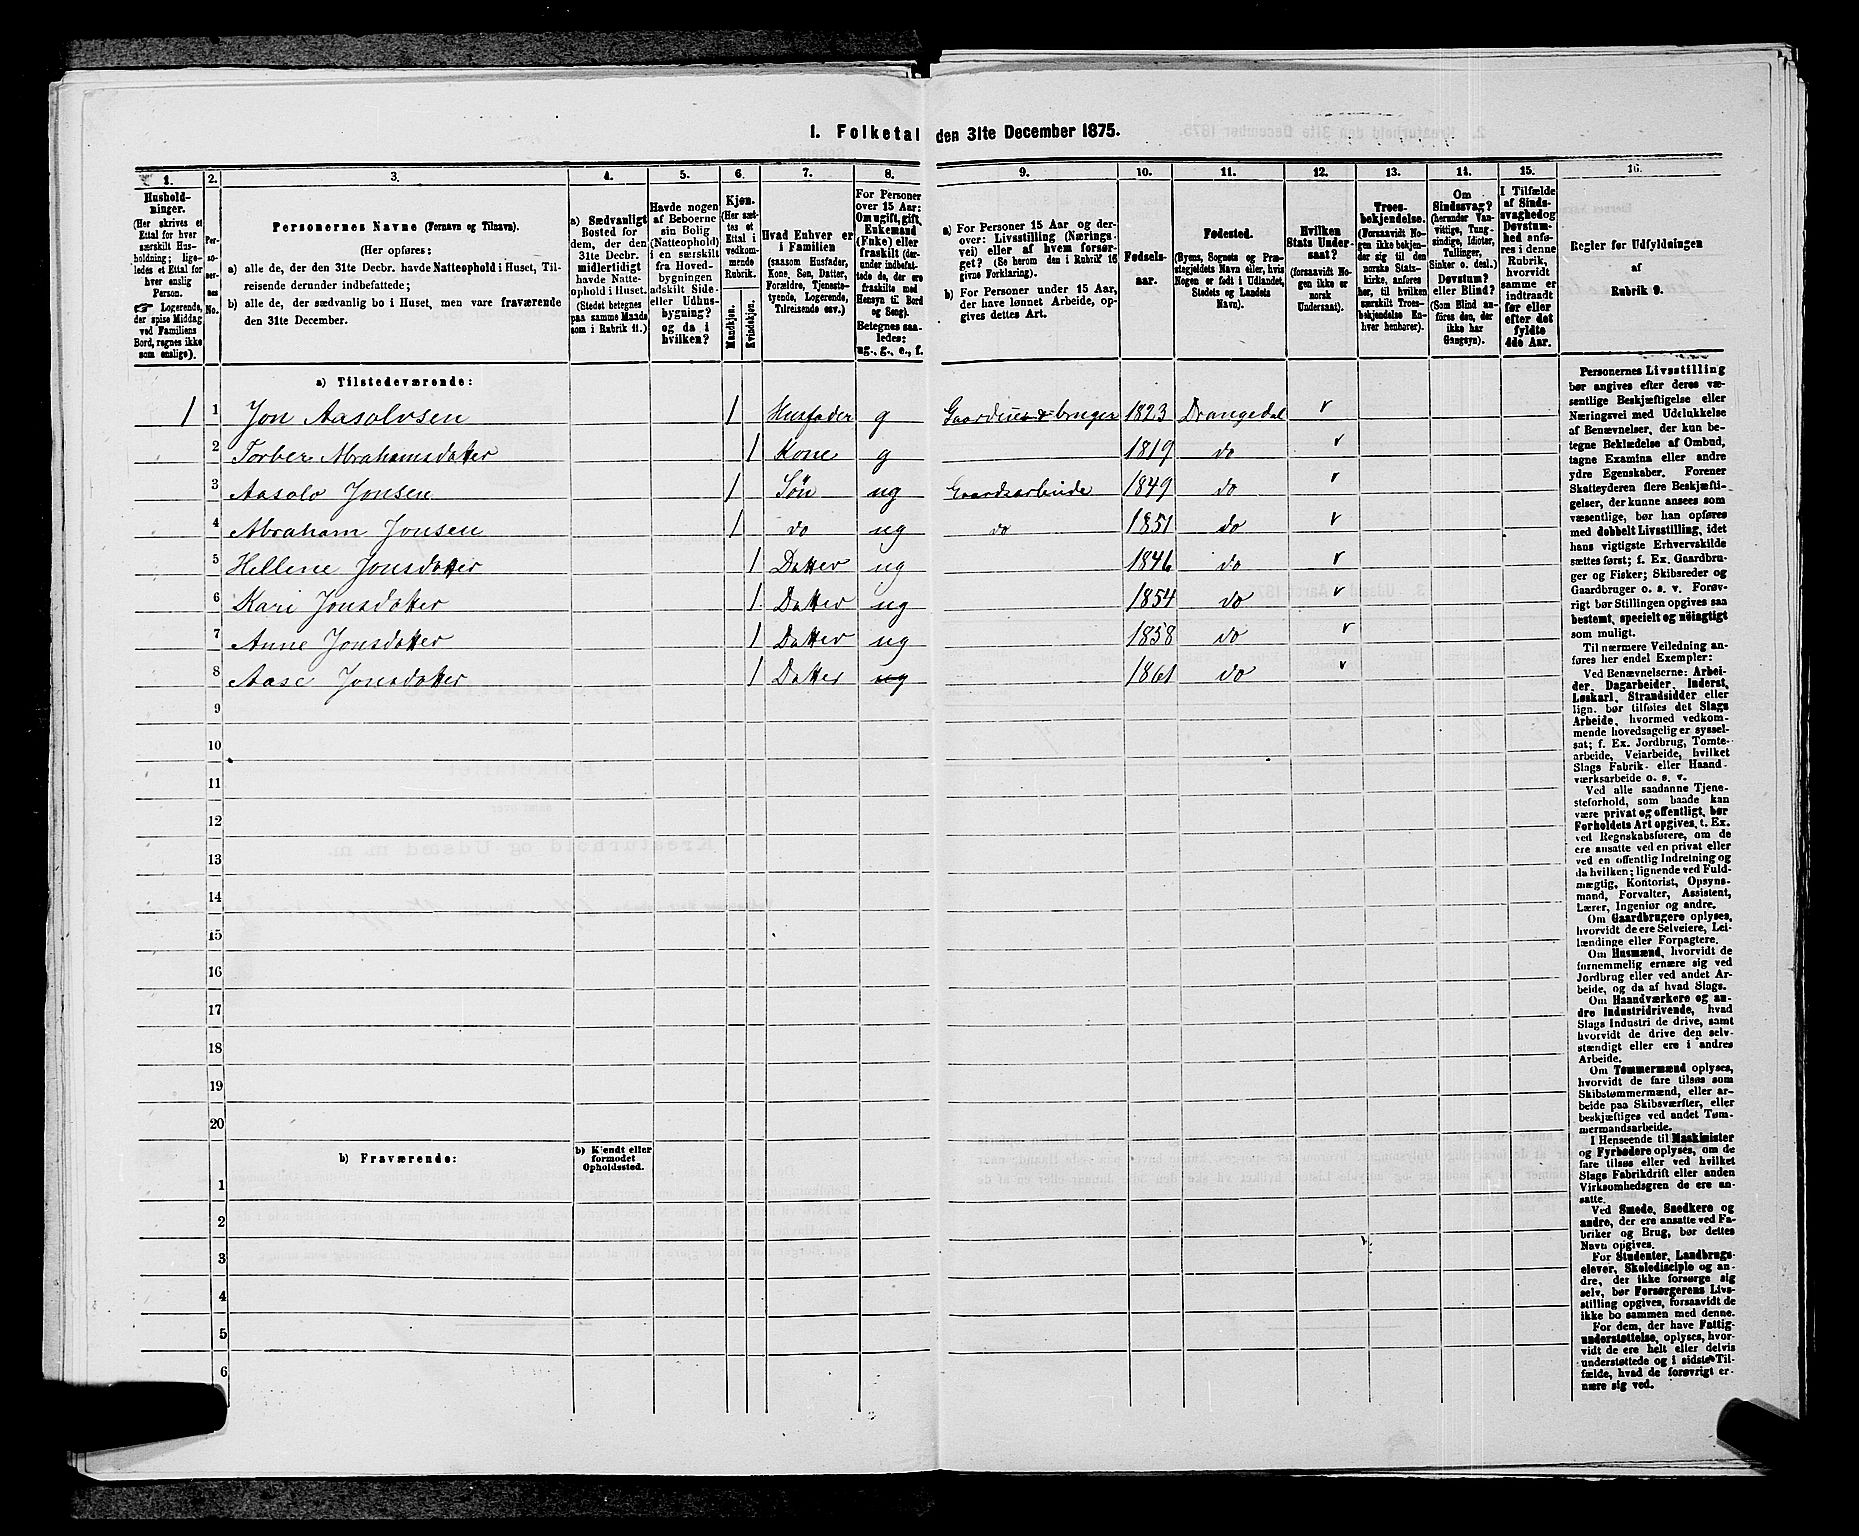 1. Folketal den 31te December 1875.
1. 2. 3. 4. 5. 6. 7. 8. 9. 10. 11. 12. 13. 14. 15. 16.
Hushold-
ninger.
(Her skrives et
Ettal for hver
særskilt Hus-
holdning; lige-
ledes et Ettal for
hver enslig
Person.
☞ Logerende,
der spise Middag
ved Familiens
Bord, regnes ikke
som enslige).
Per-
soner-
nes
No.
Personernes Navne (Fornavn og Tilnavn).
(Her opføres:
a) alle de, der den 31te Decbr. havde Natteophold i Huset, Til-
reisende derunder indbefattede;
b) alle de, der sædvanlig bo i Huset, men vare fraværende
den 31te December.
a) Sædvanligt
Bosted for
dem, der den
31te Decbr.
midlertidigt
havde Natte-
ophold i Huset.
(Stedet betegnes
paa samme Maade
som i Rubrik 11.)
Havde nogen
af Beboerne
sin Bolig
(Natteophold)
i en særskilt
fra Hoved-
bygningen
adskilt Side-
eller Udhus-
bygning?
og da i
hvilken?
Kjøn.
(Her sæt-
tes et
Ettal i
vedkom-
mende
Rubrik.
Mandkjøn.
Kvindekjøn.
Hvad Enhver er
i Familien
(saasom Husfader,
Kone, Søn, Datter,
Forældre, Tjeneste-
tyende, Logerende,
Tilreisende osv.)
For Personer
over 15 Aar:
Om ugift, gift,
Enkemand
(Enke) eller
fraskilt (der-
under indbefat-
tede de, der ere
fraskilte med
Hensyn til Bord
og Seng).
Betegnes saa-
ledes:
ug., g., e., f.
a) For Personer 15 Aar og der-
over: Livsstilling (Nærings-
vei) eller af hvem forsør-
get? (Se herom den i Rubrik 16
givne Forklaring).
b) For Personer under 15 Aar,
der have lønnet Arbeide, op-
gives dettes Art.
Fødsels-
aar.
Fødested.
(Byens, Sognets og Præ-
stegjeldets Navn eller, hvis
Nogen er født i Udlandet,
Stedets og Landets
Navn).
Hvilken
Stats Under-
saat?
(forsaavidt No-
gen ikke er
norsk
Undersaat).
Troes-
bekjendelse.
(Forsaavidt No-
gen ikke bekjen-
der sig til den
norske Stats-
kirke, anføres
her, til hvilken
særskilt Troes-
bekjendelse En-
hver henhører).
Om
Sindssvag?
(herunder Van-
vittige, Tung-
sindige, Idioter,
Tullinger,
Sinker o. desl.)
Døvstum?
eller Blind?
(Som Blind an-
føres den, der
ikke har
Gangsyn).
I Tilfælde
af Sinds-
svaghed og
Døvstum-
hed anfø-
res i denne
Rubrik,
hvorvidt
samme er
indtraadt
før eller
efter det
fyldte
4de Aar.
Regler for Udfyldningen
af
Rubrik 9.
a) Tilstedeværende:
1 1 Jon Aasolvsen 1 Husfader g Gaardbruger 1823 Drangedal v
2 Torber Abrahamsdatter 1 Kone g 1819 do v
3 Aasolv Jonsen 1 Søn ug Gaardsarbeide 1849 do v
4 Abraham Jonsen 1 do ug do 1851 do v
5 Hellene Jonsdatter 1 Datter ug 1846 do v
6 Kari Jonsdatter 1 Datter ug 1854 do v
7 Anne Jonsdatter 1 Datter ug 1858 do v
8 Aase Jonsdatter 1 Datter ug 1861 do v
9
10
11
12
13
14
15
16
17
18
19
20
b) Fraværende:
b) Kjendt eller
formodet
Opholdssted.
1
2
3
4
5
6
Personernes Livsstilling
bør angives efter deres væ-
sentlige Beskjæftigelse eller
Næringsvei med Udelukkelse
af Benævnelser, der kun be-
tegne Beklædelse af Ombud,
tagne Examina eller andre
ydre Egenskaber. Forener
Skatteyderen flere Beskjæfti-
gelser, der kunne ansees som
væsentlige, bør han opføres
med dobbelt Livsstilling, idet
hans vigtigste Erhvervskilde
sættes først; f. Ex. Gaardbru-
ger og Fisker; Skibsreder og
Gaardbruger o. s. v. Forøv-
rigt bør Stillingen opgives saa
bestemt, specielt og nöiagtigt
som muligt.
Til nærmere Veiledning an-
føres her endel Exempler:
Ved Benævnelserne: Arbei-
der, Dagarbeider, Inderst,
Løskarl, Strandsidder eller
lign. bør tilføies det Slags
Arbeide, hvormed vedkom-
mende hovedsagelig er syssel-
sat; f. Ex. Jordbrug, Tomte-
arbeide, Veiarbeide, hvilket
Slags Fabrik- eller Haand-
værksarbeide o. s. v.
Ved alle saadanne Tjene-
steforhold, som baade kan
være privat og offentligt, bør
Forholdets Art opgives, t. Ex.
ved Regnskabsførere, om de
ere ansatte ved en privat eller
ved en offentlig Indretning og
da hvilken; lignende ved Fuld-
mægtig, Kontorist, Opsyns-
mand, Forvalter, Assistent,
Lærer, Ingeniør og andre.
Om Gaardbrugere oplyses,
hvorvidt de ere Selveiere, Lei-
lændinge eller Forpagtere.
Om Husmænd, hvorvidt de
fornemmelig ernære sig ved
Jordbrug eller ved andet Ar-
beide, og da af hvad Slags.
Om Haandværkere og an-
dre Industridrivende, hvad
Slags Industri de drive, samt
hvorvidt de drive den selv-
stændigt eller ere i andres
Arbeide.
Om Tømmermænd oplyses,
hvorvidt de fare tilsøs som
Skibstømmermænd, eller ar-
beide paa Skibsværfter, eller
beskjæftiges ved andet Tøm-
mermandsarbeide.
I Henseende til Maskinister
og Fyrbødere oplyses, om de
fare tilsøs eller ved hvilket
Slags Fabrikdrift eller anden
Virksomhedsgren de ere an-
satte.
Ved Smede, Snedkere og
andre, der ere ansatte ved Fa-
briker og Brug, bør dettes
Navn opgives.
For Studenter, Landbrugs-
elever, Skoledisciple og an-
dre, der ikke forsørge sig
selv, bør Forsørgerens Livs-
stilling opgives, forsaavidt de
ikke bo sammen med denne.
For dem, der have Fattig-
understøttelse, oplyses, hvor-
vidt de ere helt eller delvis
understøttede og i sidste Til-
fælde, hvad de forøvrigt er-
nære sig ved.